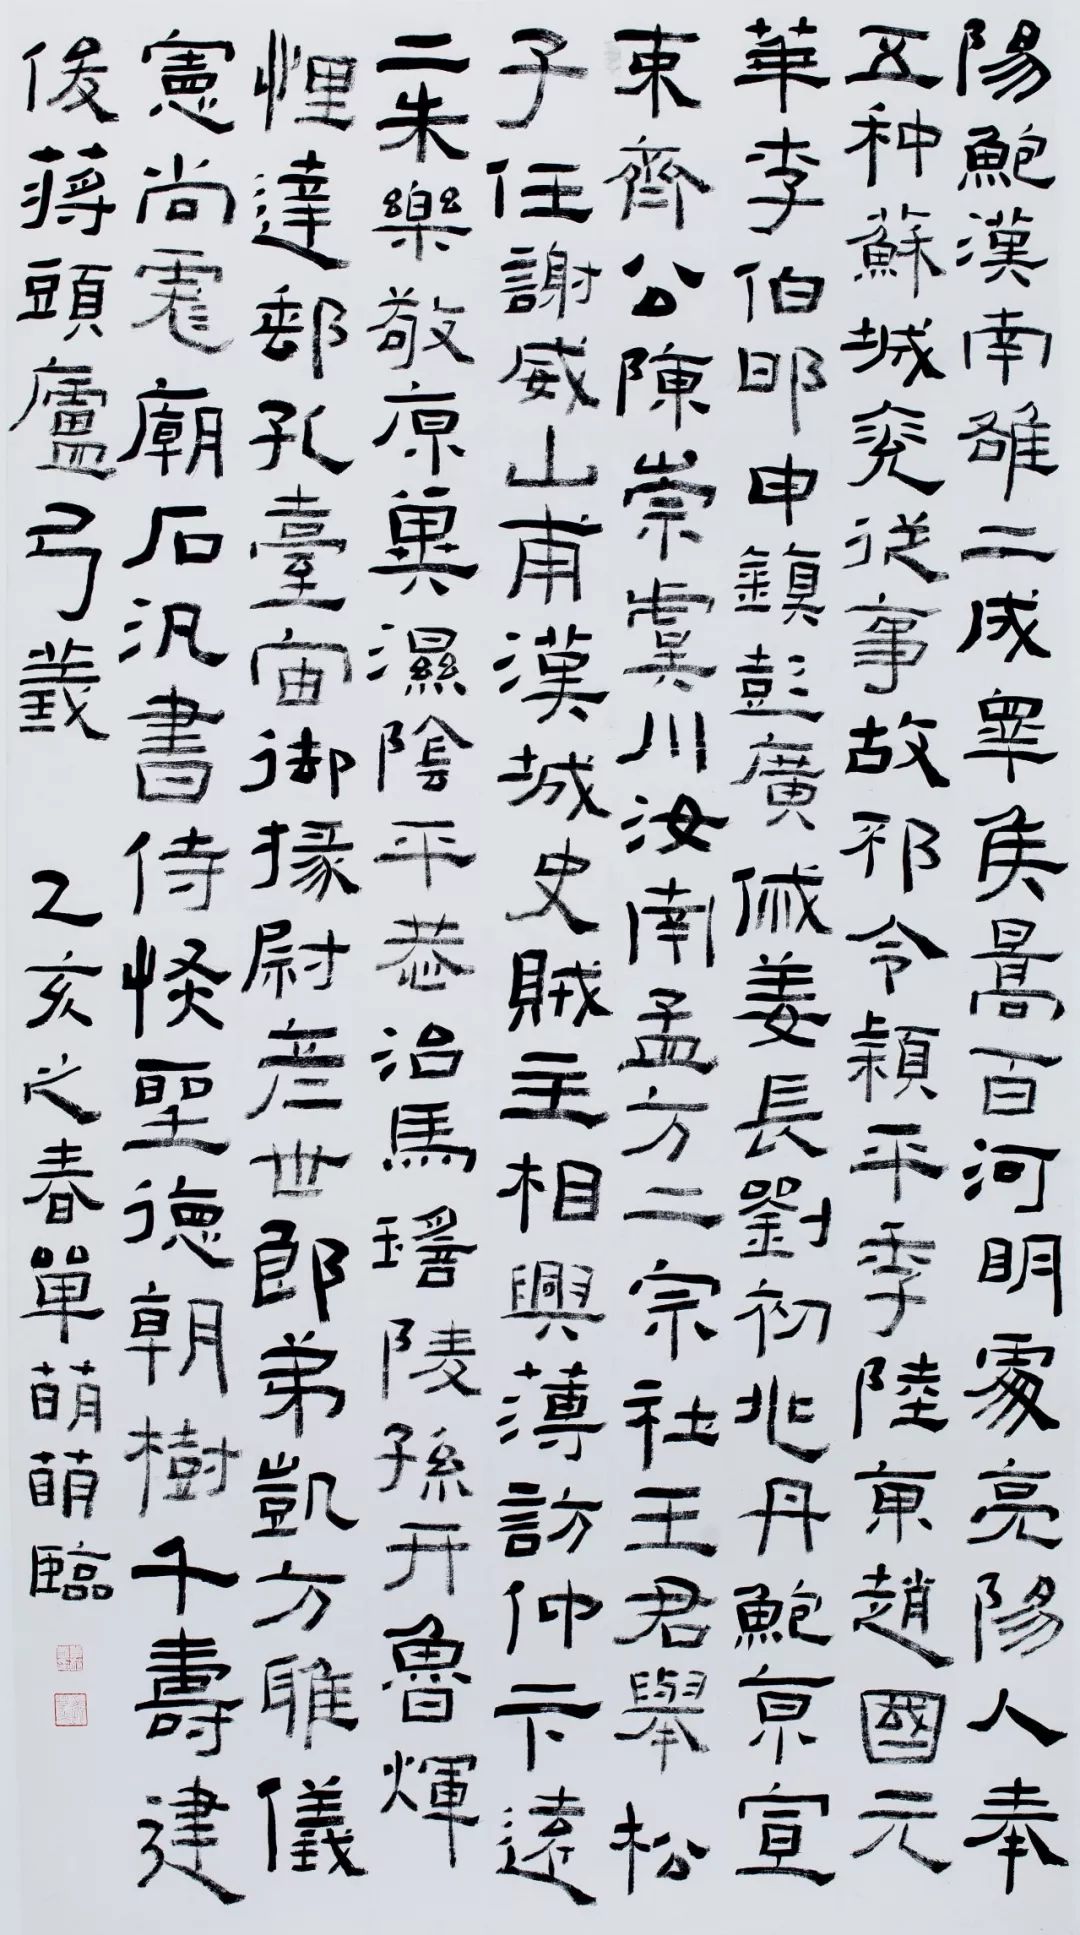 陽鮑漢南雒二成睪矦暠百河明處亮陽人奉
五种蘇城兖從事故邪令穎平季陸東趙國元
華李伯邯申鎮彭廣姜長劉初兆丹鮑京宣
東齊公陳崇虞川汝南孟方二宗社王君舉松
子任謝威山甫漢城史賊主相興薄訪仲卞遠
二朱樂敬原巢濕陰平恭治馬瑤陵孫开魯煇
悝達郵孔臺宙御掾尉彥世郎弟凱方雎儀
憲尚廟石汎書侍聖德朝樹千壽建
俊蔣頭廬弓羛
乙亥之春單萌萌臨